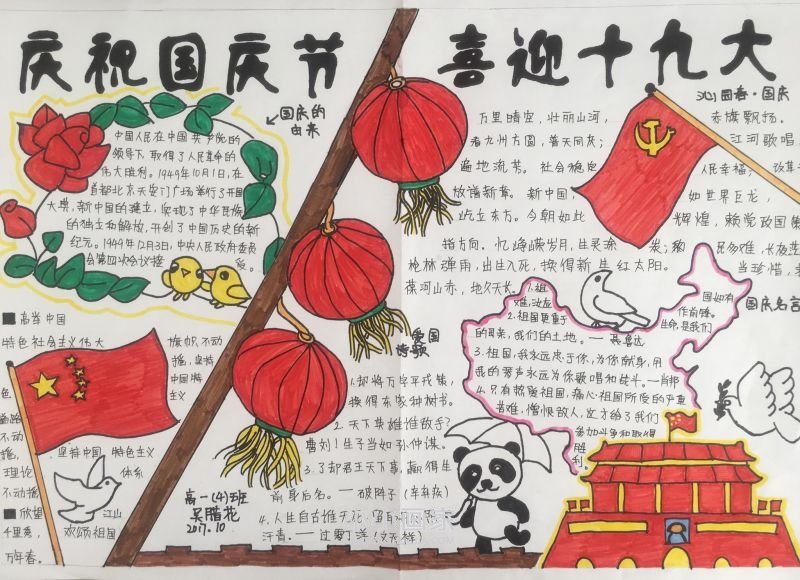 庆祝国庆节
喜迎十九大
国庆的
由来
中国人民在中国共产党的
领导下,取得了人民革命的
伟大胜利。1949年10月1日,在
首都北京天安门广场举行了开国
大典,新中国的建立,实现了中华民族
的独立和解放,开创了中国历史的新
纪元。1949年12月3日,中央人民政府委员
会第四次会议接受。
沁园春·国庆
万里晴空,壮丽山河,赤旗飘扬。
看九州方圆,普天同庆;江河歌唱,
遍地流芳。社会稳定,人民幸福;
放谱新章。新中国,如世界巨龙,
屹立东方。今朝如此辉煌,赖党政国策
指方向。忆峥嵘岁月,生灵涂炭;
民勿难,长夜
枪林弹雨,出生入死,换得新生红太阳。当珍惜,
葆河山赤,地久天长。
■高举中国
特色社会主义伟大
旗帜不动
摇,坚持
中国特
主义
坚持中国特色主义
理论体系
不动摇
■欣望江山
千里秀,欢颂祖国
万年春。
爱国
诗歌
1.却将万字平戎策,
换得东家种树书。
2.天下英雄谁敌手?
曹刘!生子当如孙仲谋。
3.了却君王天下事,赢得生
前身后名。——破阵子(辛弃疾)
4.人生自古谁无死,留取
汗青。——过零丁洋(文天祥)
高一(4)班
吴腊花
2017.10
国庆名言
1.祖
国如有难,汝应作前锋。
2.祖国更重于生命,是我们
的母亲,我们的土地。——聂鲁达
3.祖国,我永远忠于你,为你献身,用
我的琴声永远为你歌唱和战斗。——肖邦
4.只有热爱祖国,痛心祖国所受的严重
苦难,憎恨敌人,这才给了我们
参加斗争和取得
胜利。